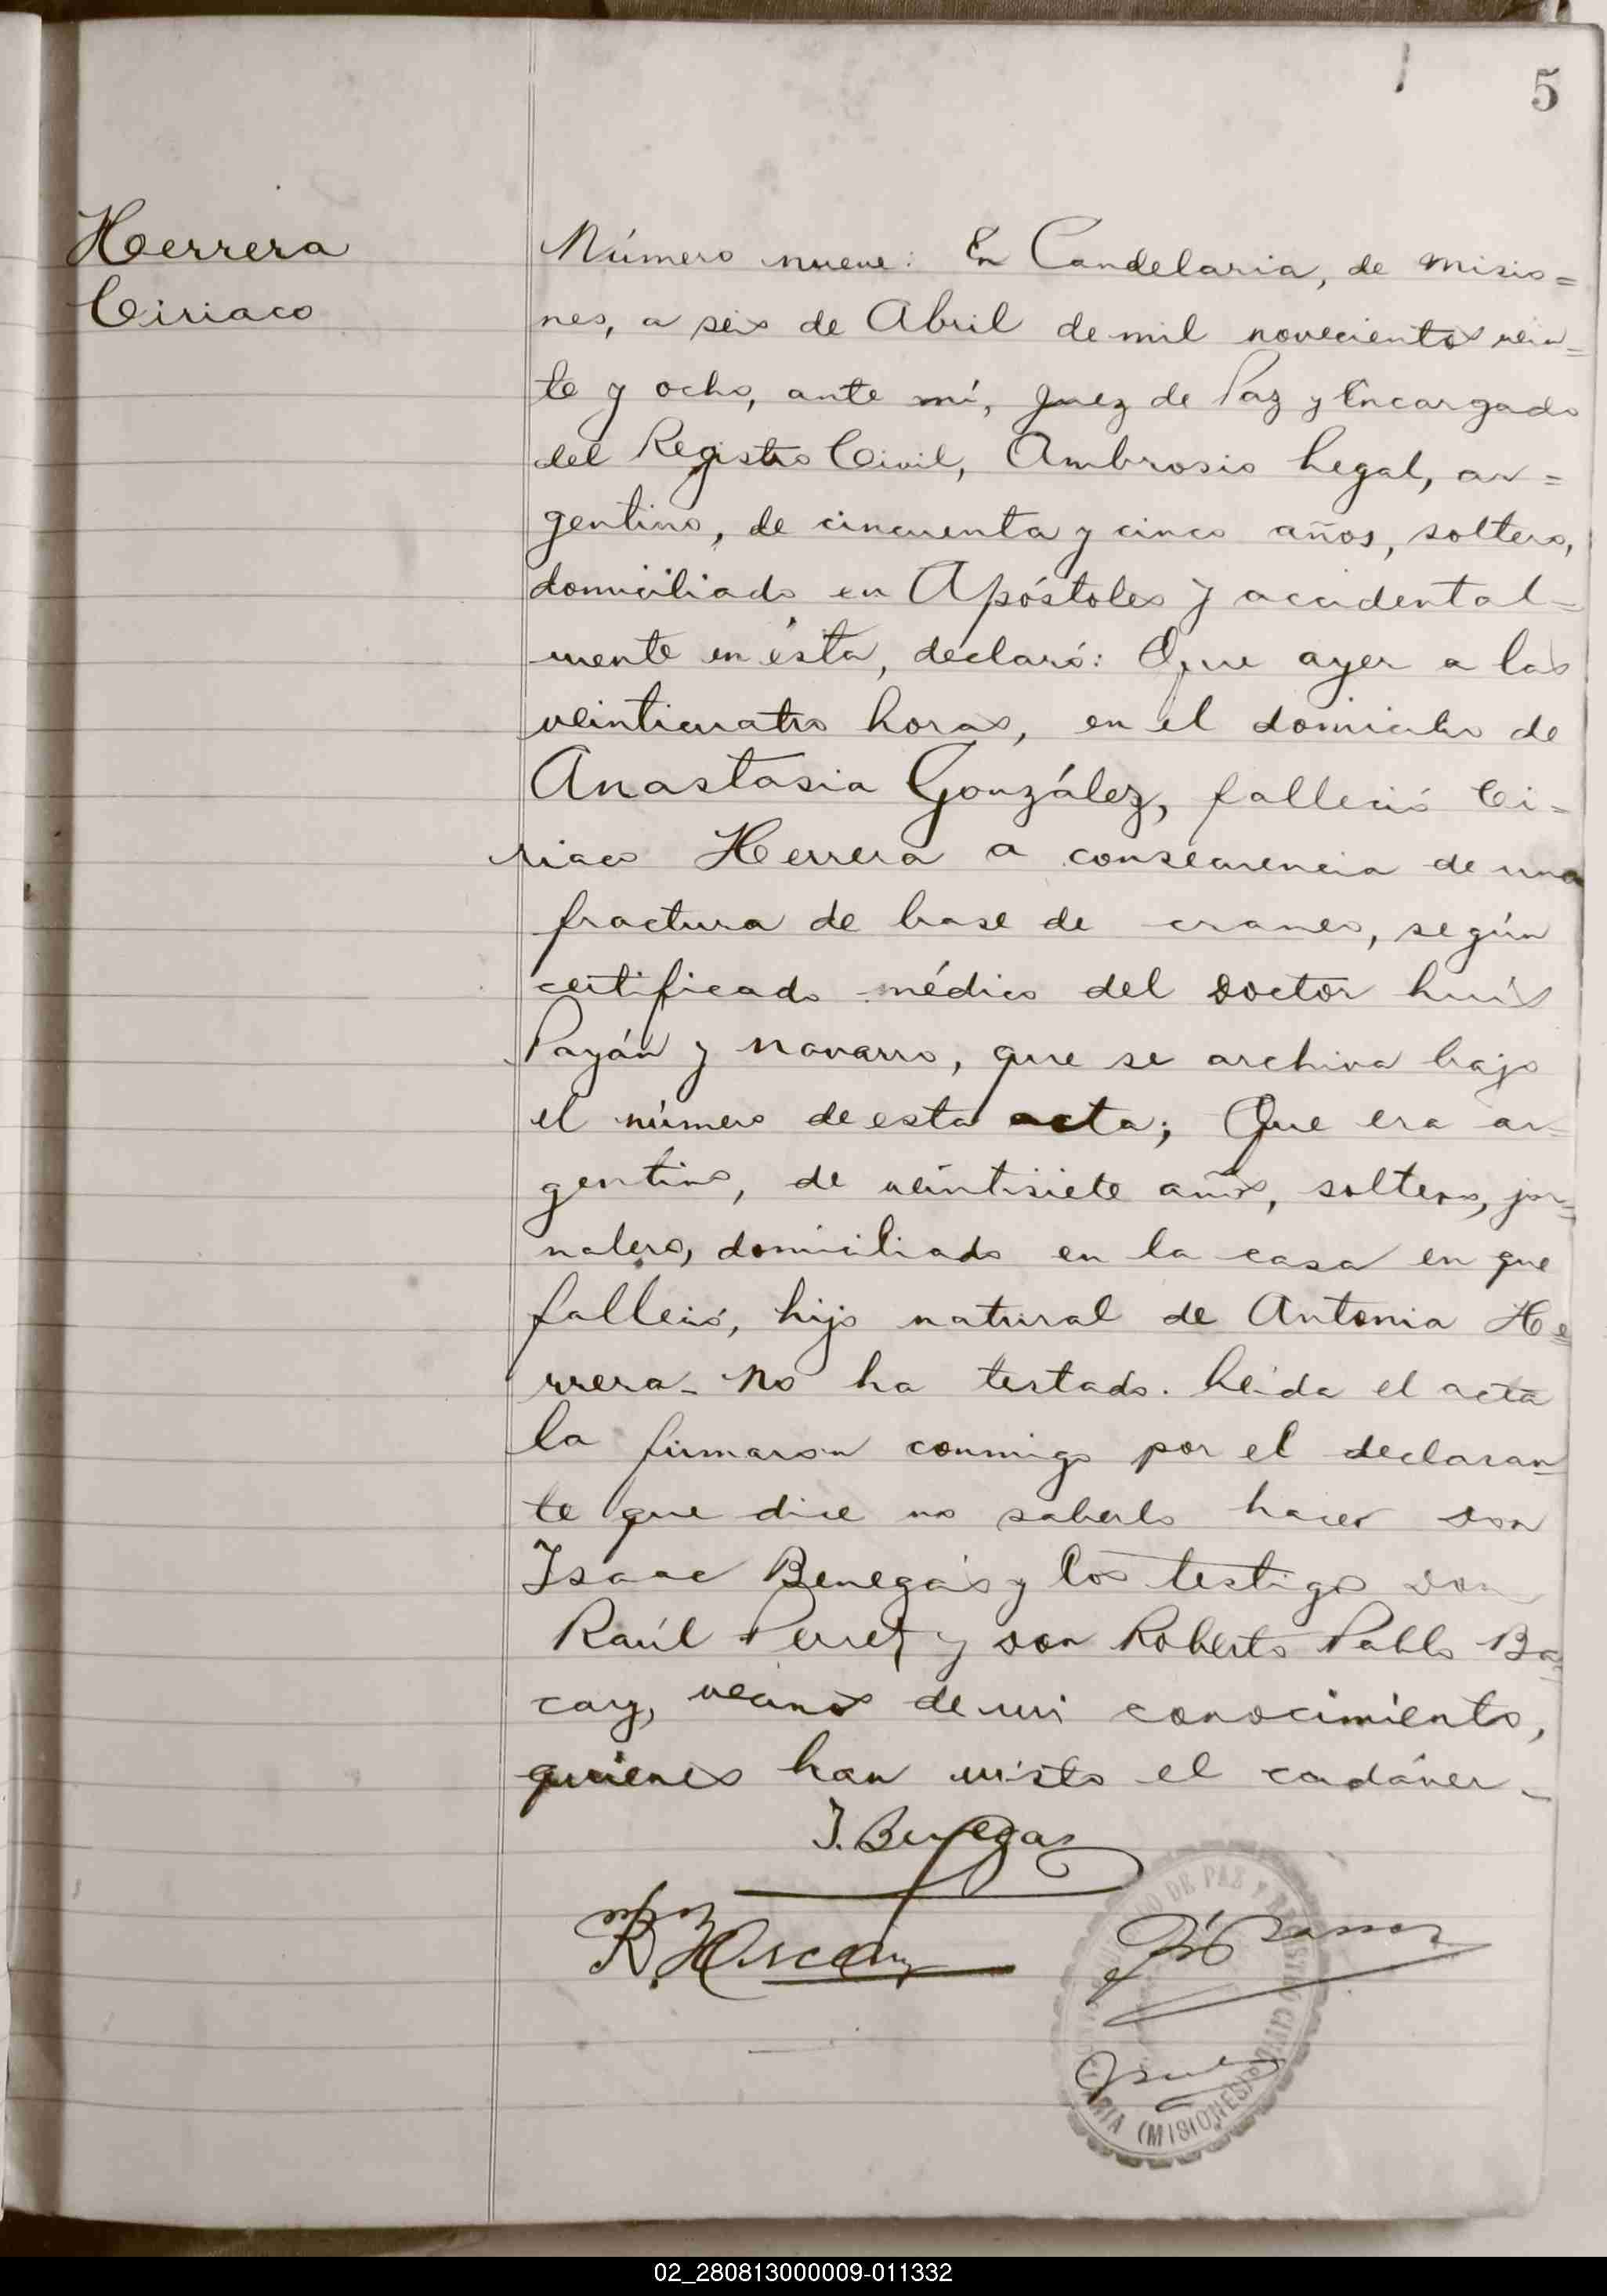 5
Herrera
Ciriaco
Número nueve: En Candelaria, de Misio=
nes, a seis de Abril de mil novecientos vein=
te y ocho, ante mí, Juez de Paz y Encargado
del Registro Civil, Ambrosio Legal, ar=
gentino, de cincuenta y cinco años, soltero,
domiciliado en Apóstoles y accidental=
mente en ésta, declaró: Que ayer a las
veinticuatro horas, en el domicilio de
Anastasia González, falleció Ci=
riaco Herrera a consecuencia de una
fractura de base de craneo, según
certificado médico del Doctor Luis
Payán y Navarro, que se archiva bajo
el número de esta acta; Que era ar=
gentino, de veintisiete años, soltero, jor=
nalero, domiciliado en la casa en que
falleció, hijo natural de Antonia He=
rrera- No ha testado. Leída el acta
la firmaron conmigo por el declaran=
te que dice no saberlo hacer Don
Isaac Benegas y los testigos Don
Raúl y Don Roberto Pablo
vecinos de mi conocimiento,
quienes han visto el cadáver-
I. Benegas
DE PAZ Y REGISTRO CIVIL
(MISIONES)
02_280813000009-011332